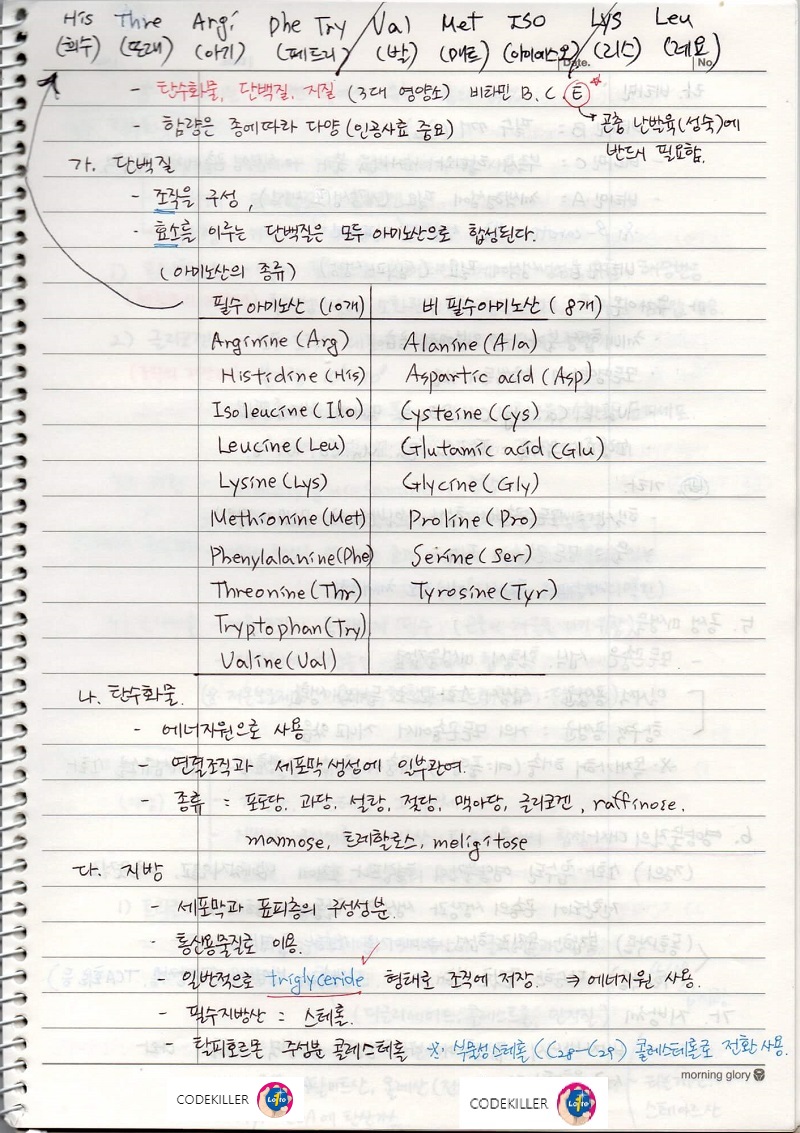 His Thre Argi Phe Try Val Met ISO Lys Leu
(희수) (뜨레) (아기) (페트리) (발) (매트) (아이에스오) (리스) (레요)
Date. No
- 탄수화물, 단백질, 지질 (3대 영양소) 비타민 B, C, E *
→ 곤충 난발육(성숙)에
반드시 필요함.
- 함량은 종에따라 다양 (인공사료 중요)
가. 단백질
- 조직을 구성,
- 효소를 이루는 단백질은 모두 아미노산으로 합성된다.
(아미노산의 종류)
필수아미노산 (10개) 비 필수아미노산 (8개)
Arginine (Arg) Alanine (Ala)
Histidine (His) Aspartic acid (Asp)
Isoleucine (Ilo) Cysteine (Cys)
Leucine (Leu) Glutamic acid (Glu)
Lysine (Lys) Glycine (Gly)
Methionine (Met) Proline (Pro)
Phenylalanine (Phe) Serine (Ser)
Threonine (Thr) Tyrosine (Tyr)
Tryptophan (Try)
Valine (Val)
나. 탄수화물.
- 에너지원으로 사용
- 연결조직과 세포막 생성에 일부관여.
- 종류 : 포도당. 과당. 설탕, 젖당, 맥아당, 글리코겐, raffinose.
mannose, 트레할로스, meligitose
다. 지방
- 세포막과 표피층의 구성성분.
- 통신용물질로 이용.
- 일반적으로 triglyceride 형태로 조직에 저장. ⇒ 에너지원 사용.
- 필수지방산 = 스테롤.
- 탈피호르몬 구성분 콜레스테롤 ※. 식물성스테롤 (C28-C29) 콜레스테롤로 전환사용.
morning glory
CODEKILLER Lotto CODEKILLER Lotto